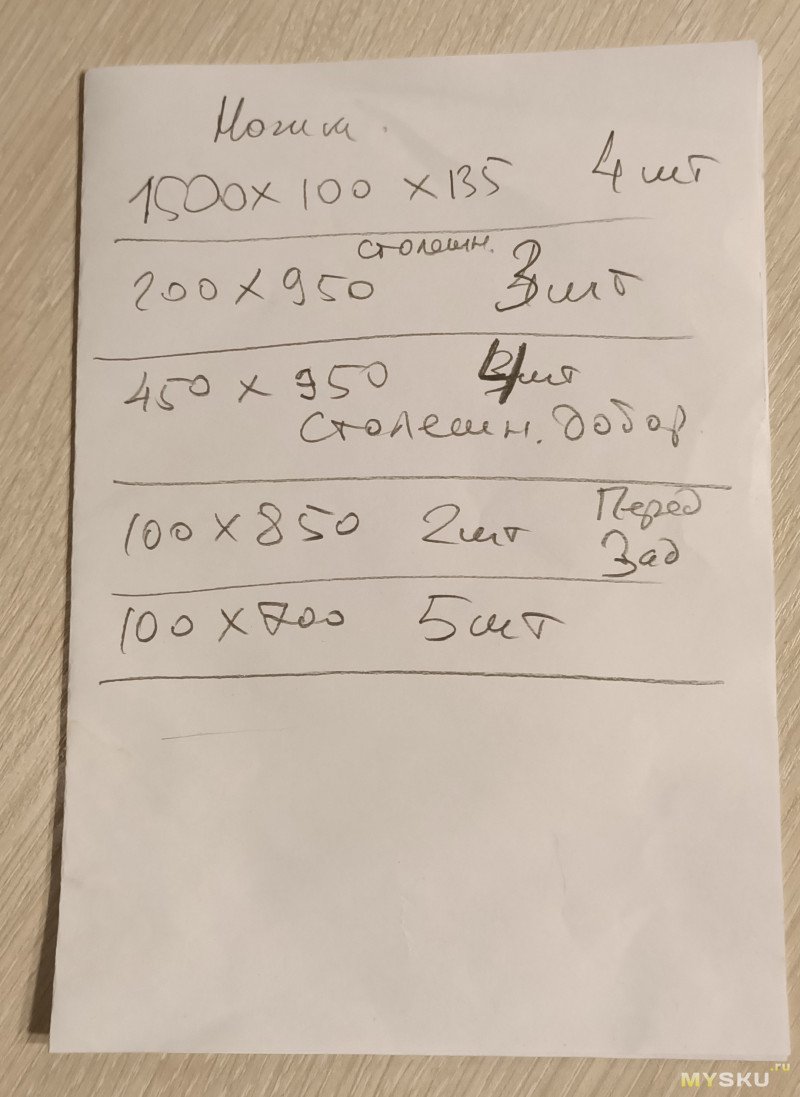 Ножки.
1500 х 100 х 135 4 шт
столешн.
200 х 950 3 шт
450 х 950 4 шт
столешн. добор.
100 х 850 2 шт Перед
Зад
100 х 700 5 шт
MYSKU.ru